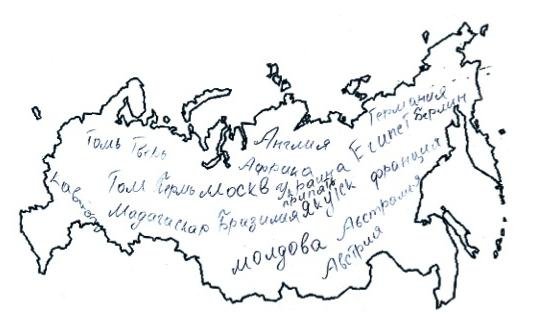 Германия
Египет Берлин
Томь Тверь
Англия
Африка
Украина
Франция
Том
Москв
Припять
Якутск
Мадагаскар Бразилия
Австралия
Молдова
Австрия